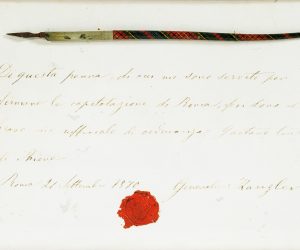 Di questa penna, di cui mi sono servito per
scrivere la capitolazione di Roma, fò dono al
mio ufficiale di ordinanza, Gaetano
di
Roma 21 Settembre 1870. Generale Zanghieri